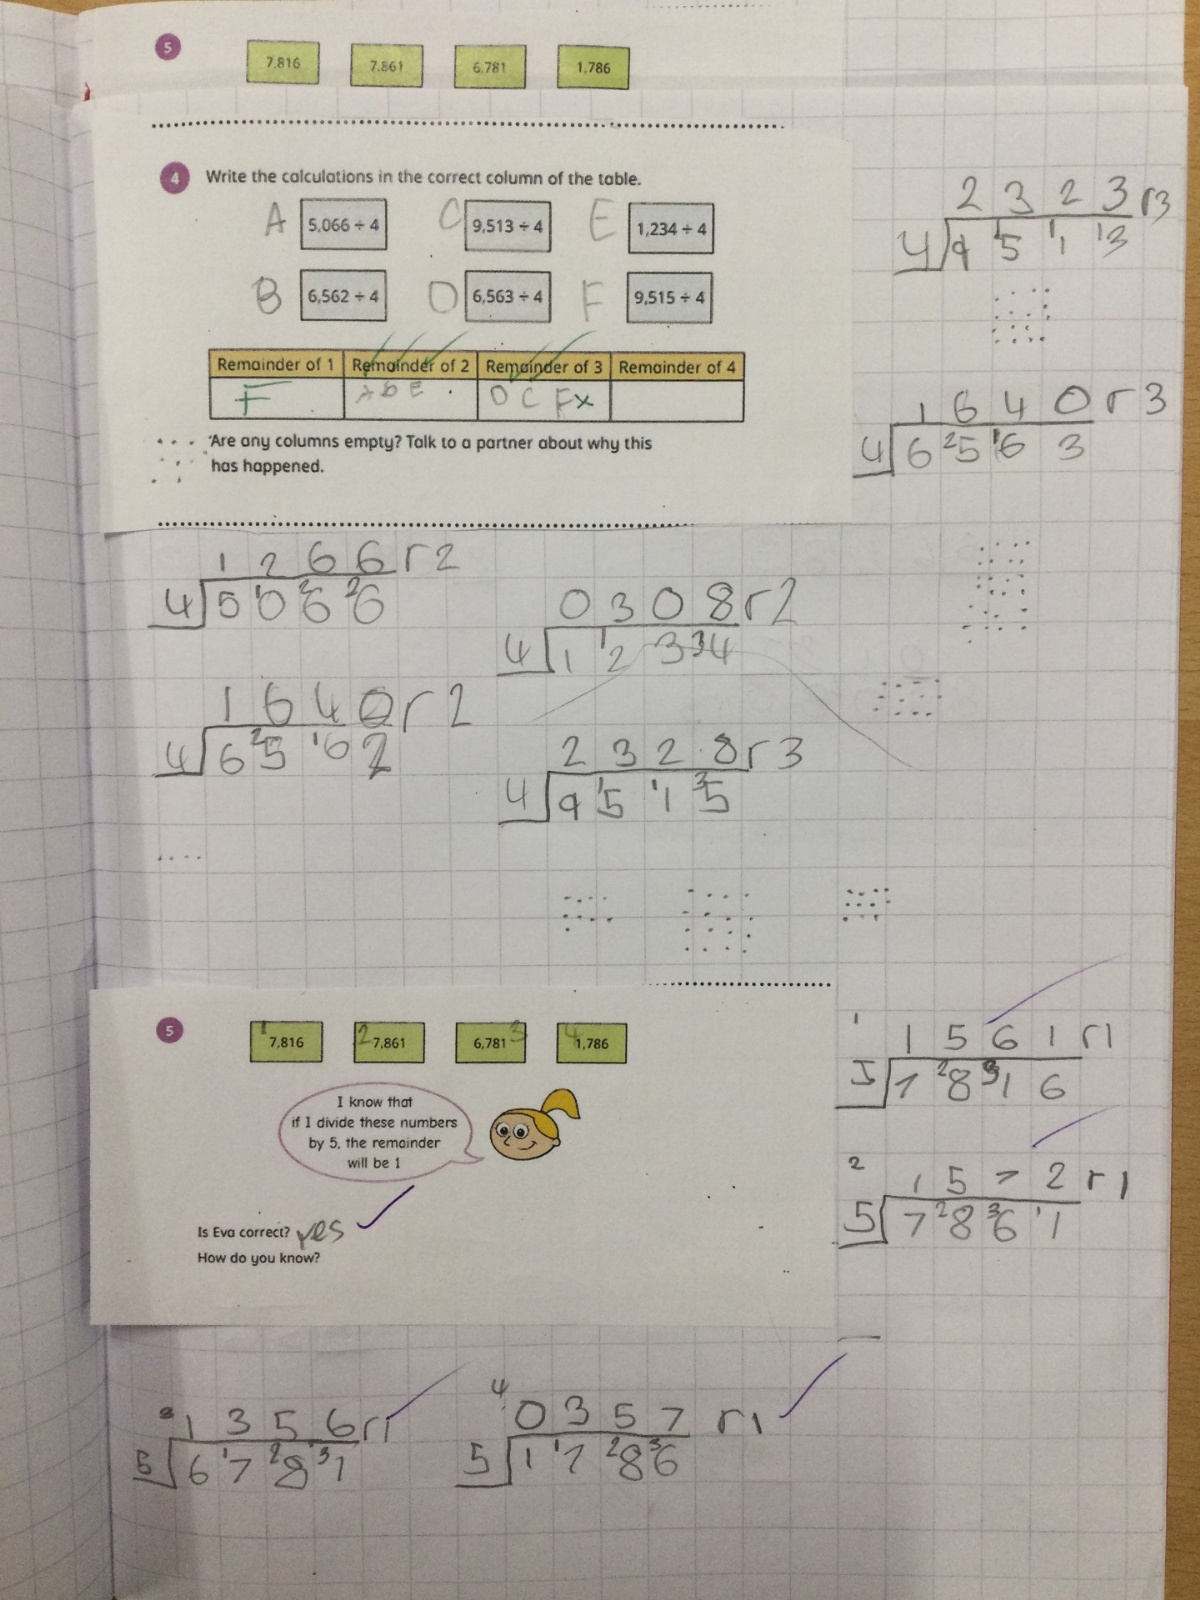 5
7,816 7,861 6,781 1,786
4 Write the calculations in the correct column of the table.
A 5,066 ÷ 4 C 9,513 ÷ 4 E 1,234 ÷ 4
B 6,562 ÷ 4 D 6,563 ÷ 4 F 9,515 ÷ 4
Remainder of 1 Remainder of 2 Remainder of 3 Remainder of 4
F A B E D C F x
Are any columns empty? Talk to a partner about why this
has happened.
2 3 2 3 r3
4 9 1 5 1 1 1 3
1 6 4 0 r 3
4 6 2 5 1 6 3
1 2 6 6 r 2
4 5 1 0 2 6 2 6
0 3 0 8 r 2
4 1 1 2 3 3 4
1 6 4 0 r 2
4 6 2 5 1 6 2
2 3 2 8 r 3
4 9 1 5 1 1 3 5
5
1 7,816 2 7,861 6,781 3 4 1,786
I know that
if I divide these numbers
by 5, the remainder
will be 1
Is Eva correct? yes
How do you know?
1
1 5 6 1 r1
5 7 2 8 3 1 6
2
1 5 7 2 r1
5 7 2 8 3 6 1 1
3
1 3 5 6 r1
5 6 1 7 2 8 3 1
4
0 3 5 7 r1
5 1 1 7 2 8 3 6